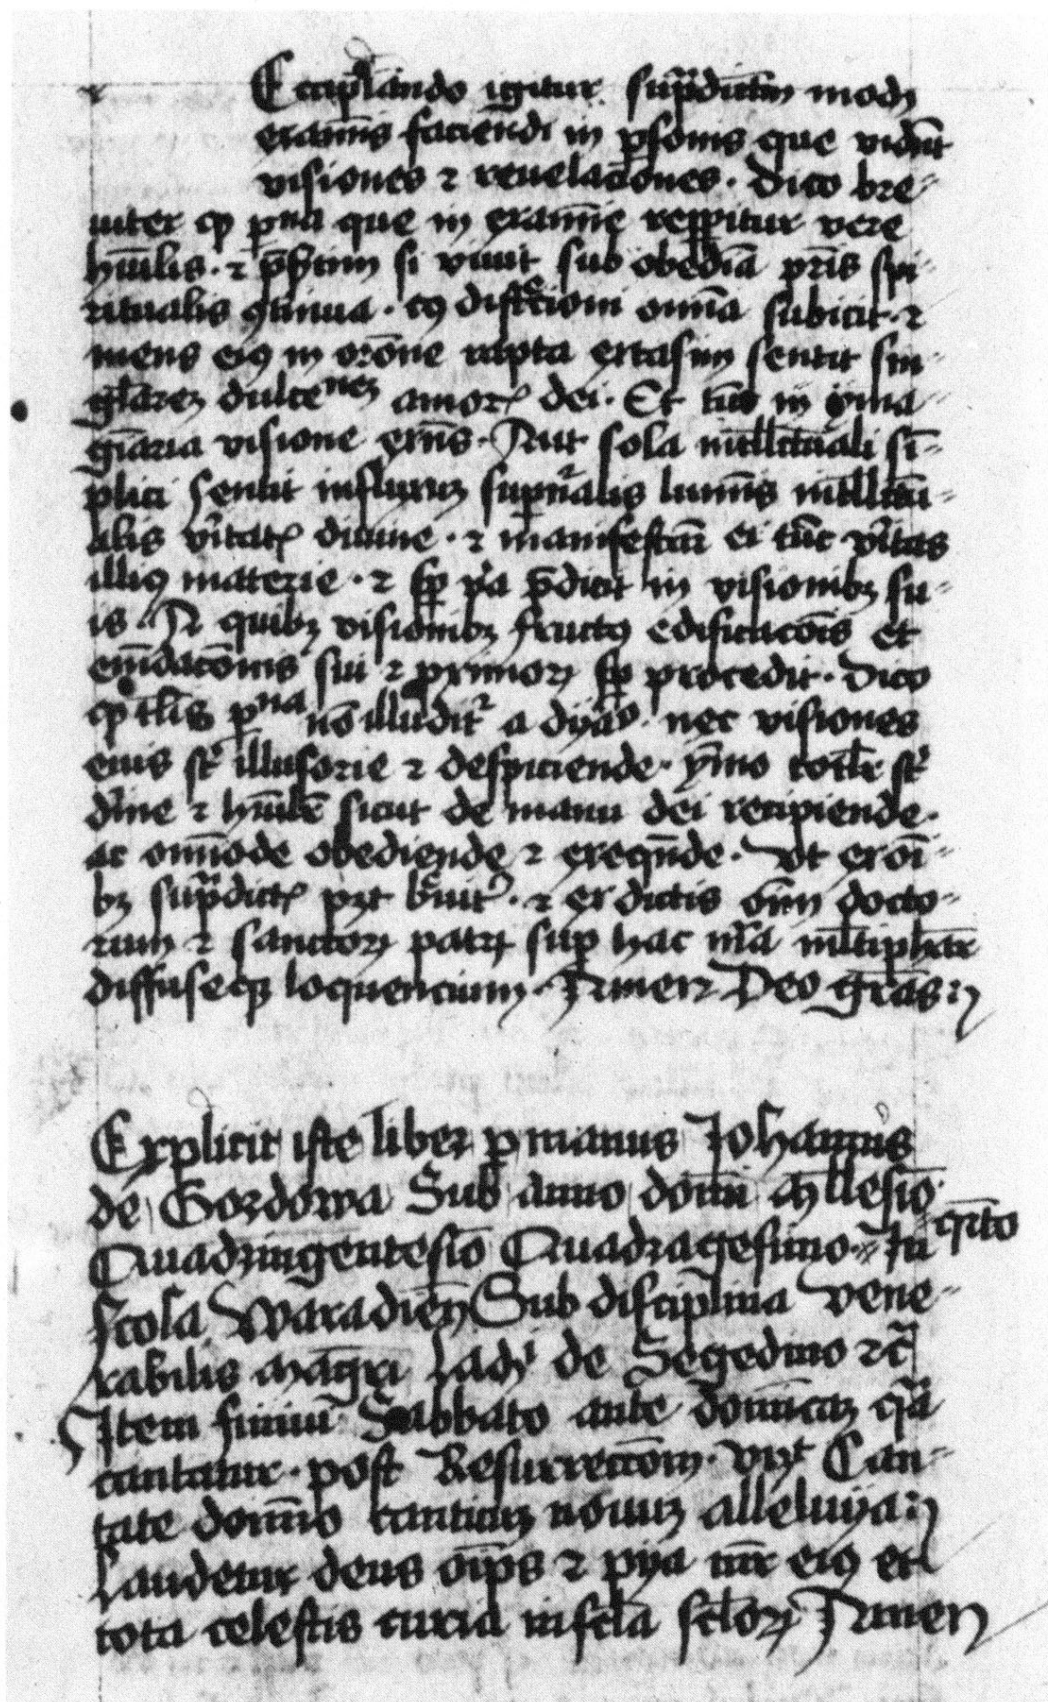 Ecciplicando igitur supradictum modum
examinis faciendi in personis que vident
visiones et reuelaciones. dico bre-
uiter quod persona que in examine repperitur vere
humilis. et presertim si viuit sub obediencia patris spi-
ritualis continua. cuius discrecioni omnia subicit. et
mens eius in oracione rapta extasim sentit sin-
gularem dulcedinem amoris dei. Et tunc in yma-
ginaria visione existens. Aut sola intellectuali sim-
plici sentit influxum supernaturalis luminis intellectu-
alis veritatis diuine. et manifestatur ei tunc veritas
illius materie. et semper vera predicit in visionibus su-
is. A quibus visionibus fructus edificacionis et
emendacionis sui et proximorum semper procedit. dico
quod talis persona non illuditur a dyabolo. nec visiones
eius sunt illusorie et despiciende. ymo totaliter sunt
diuine et humiliter sicut de manu dei recipiende.
ac omnimode obediende et exequende. Vt ex omni-
bus supradictis patet breuiter. et ex dictis omnium docto-
rum et sanctorum patrum super hac materia multipharie
diffuseque loquencium. Amen Deo gracias
Explicit iste liber per manus Johannis
de Gozdowa Sub anno domini Millesimo
Quadringentesimo Quadragesimo quinto In
scola Waradiensi Sub disciplina vene-
rabilis Magistri Ladislai de Segedino etc
Item finiuit Sabbato ante dominicam qua
cantatur. post Resurrectionem. videlicet Can-
tate domino canticum nouum alleluya
Laudetur deus omnipotens et pya mater eius et
tota celestis curia in secula seculorum Amen